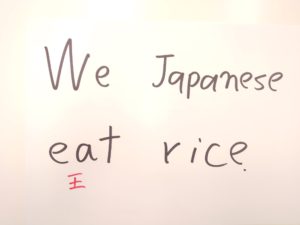 We Japanese
eat rice.
王